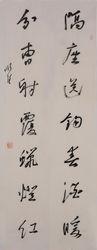 隔座送鉤春酒暖
分曹射覆蠟燈紅